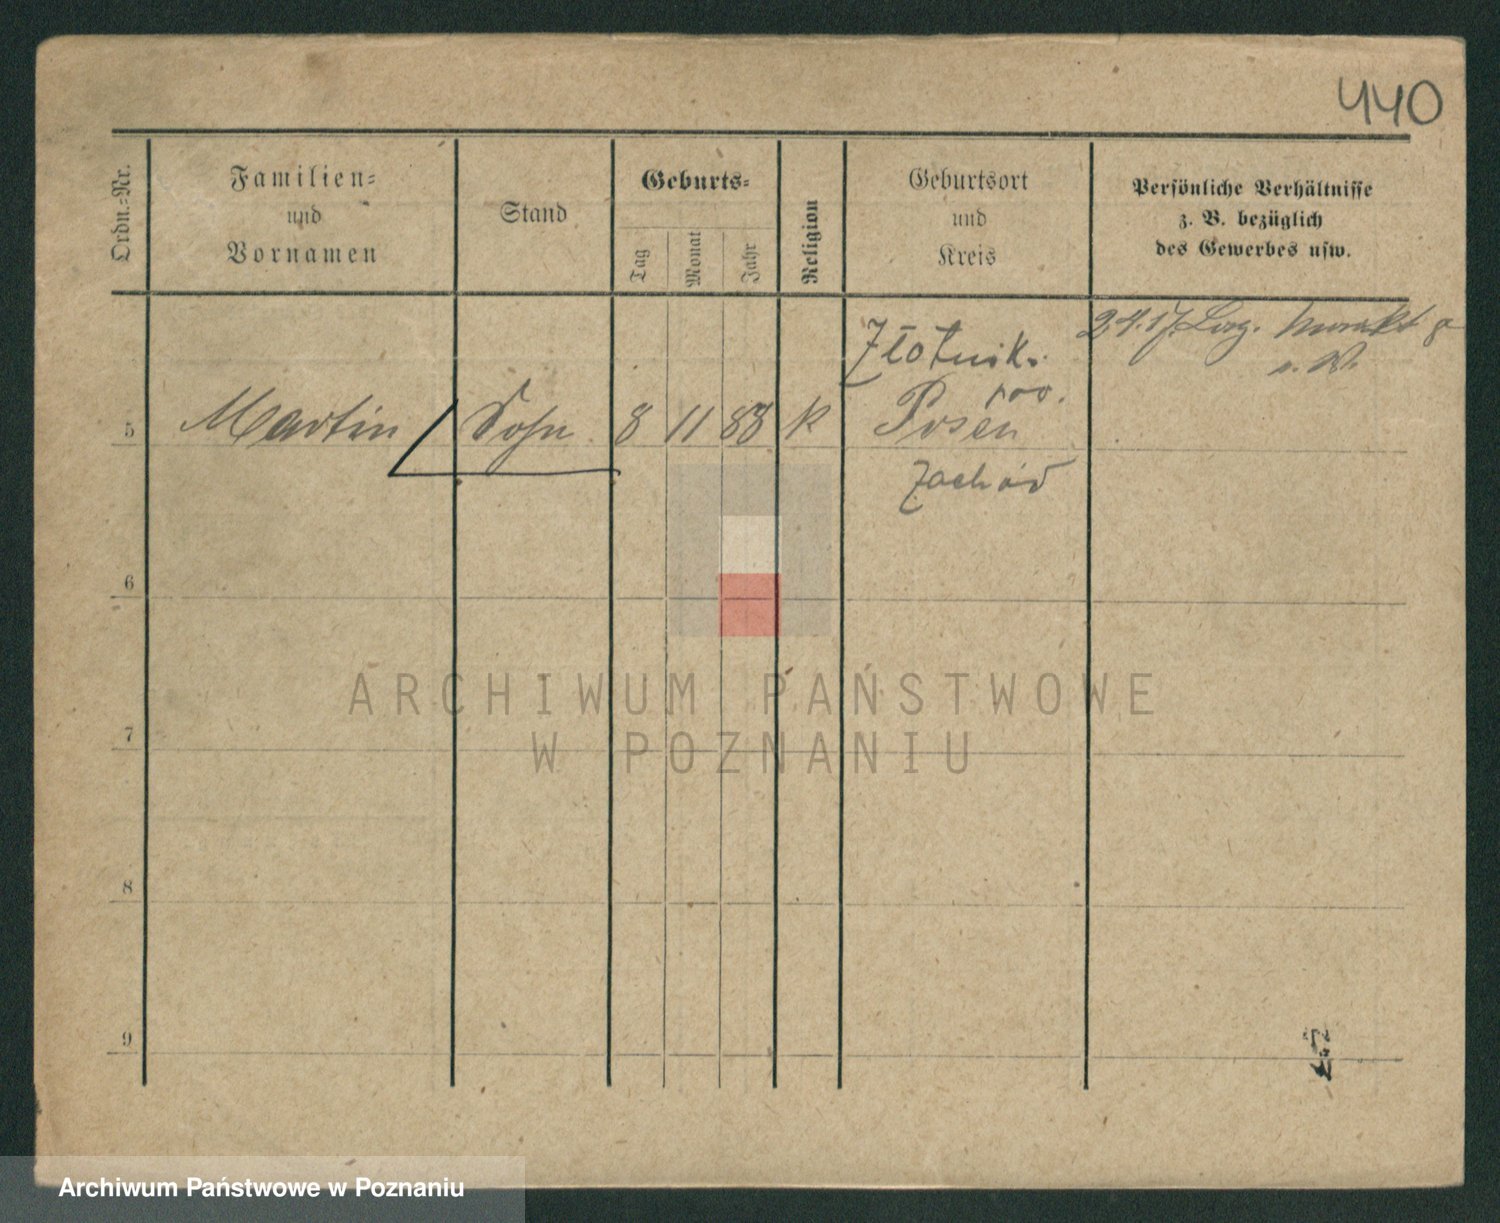 440
Ordn.-Nr.
Familien-
und
Vornamen
Stand
Geburts-
Tag
Monat
Jahr
Religion
Geburtsort
und
Kreis
Persönliche Verhältnisse
z. B. bezüglich
des Gewerbes usw.
24.17.
Złotnik.
pow.
5 Martin Sohn 8 11 88 k Posen
Zachód
6
7
8
9
ARCHIWUM PAŃSTWOWE
W POZNANIU
Archiwum Państwowe w Poznaniu